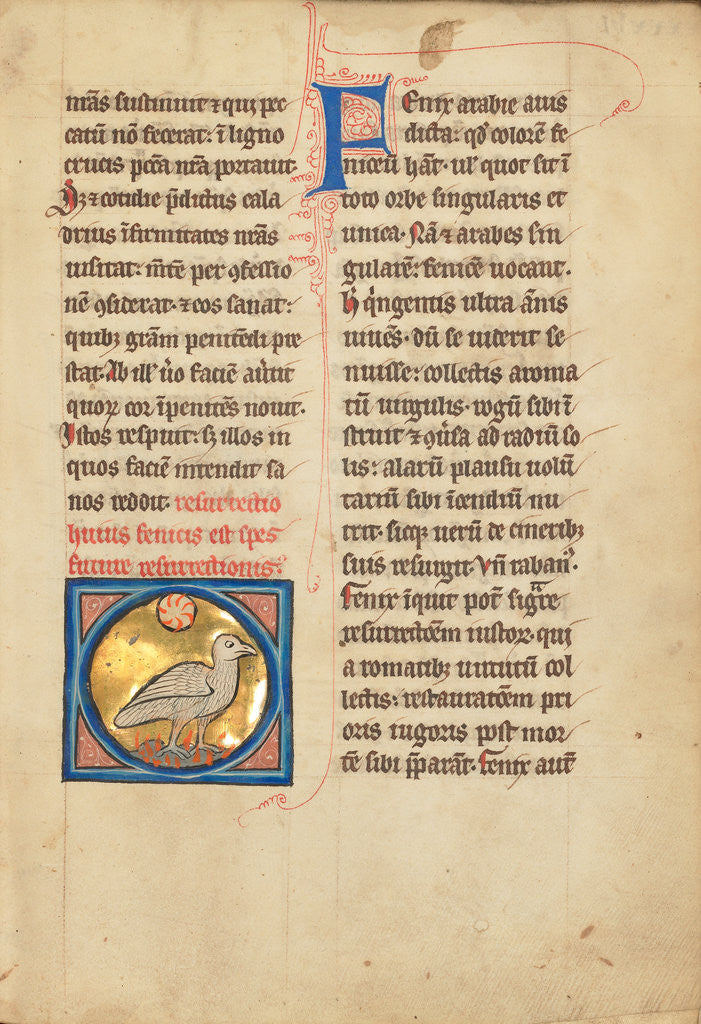 nr̄as sustinuit ⁊ qui pec
catū nō fecerat: ī ligno
crucis pccā nr̄a portauit.
Hz ⁊ cotidie p̄dictus cala
drius īfirmitates nr̄as
uisitat: m̄tē per ꝯfessio
nē ꝯsiderat. ⁊ eos sanat:
quibꝫ grām penitēdi pre
stat. Ab ill' u̓o faciē au̓tit
quoꝝ cor īpenitēs nouit.
Istos respuit: sꝫ illos in
quos faciē intendit sa
nos reddit. resurrectio
huius fenicis est spes
future resurrectionis:
Fenix arabie auis
dicta: qd̓ colorē fe
niceū hāt. ul' quot sit ī
toto orbe singularis et
unica. Nā ⁊ arabes sin
gularē: fenicē uocant.
H' qͥngentis ultra ānis
uiuēs. dū se uiderit se
nuisse: collectis aroma
tū uirgulis. rogū sibi ī
struit ⁊ ꝯu̓sa ad radiū so
lis: alarū plausu uolū
tariū sibi īcendiū nu
trit. sicqꝫ rursū de cineribꝫ
suis resurgit. Vn̄ raban̓.
Fenix īquit pōt sigͣre
resurrectōem iustoꝝ. qui
a romatibꝫ uirtutū col
lectis: restauratōem pri
oris uigoris post mor
tē sibi p̄parāt. Fenix autē